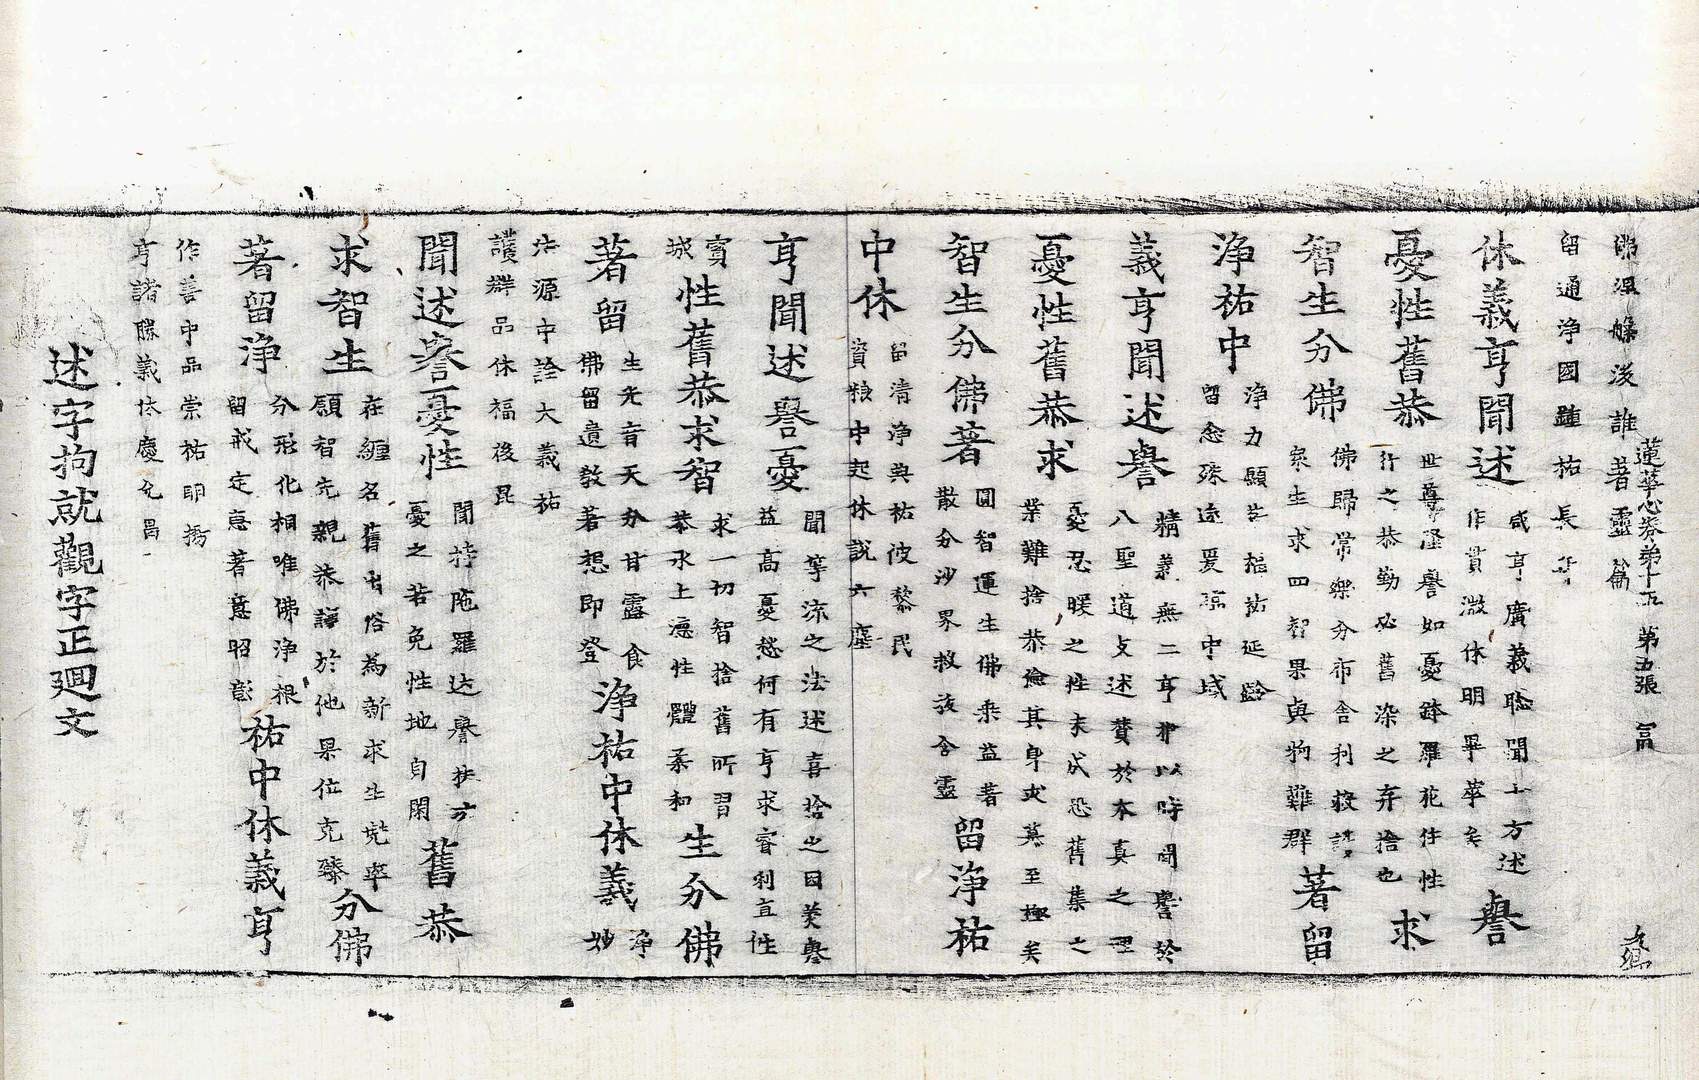 佛源緜浚誰著靈篇
蓮華心券弟十五 第五張 冨
留通淨國踵祐長年
休義亨聞述
咸亨廣義聆聞十方述
作貫溦休明畢萃矣
譽
憂性舊恭
世尊隆譽如憂鉢羅花任性
行之恭勤必舊染之弃捨也
求
智生分佛
佛歸常樂分布舍利救諸
衆生求四智果與物難群
著留
淨祐中
淨力願生福祐延齡
留念殊途爰臨中域
義亨聞述譽
精義無二亨非以時聞譽於
八聖道支述贊於本真之理
憂性舊恭求
憂忍暖之性末成恐舊集之
業難捨恭儉其身求莫至極矣
智生分佛著
圓智運生佛乘益著
散分沙界救族含靈
留淨祐
中休
留清淨與祐彼黎民
資粮中起休說六塵
亨聞述譽憂
聞等流之法述喜捨之因美譽
益高憂愁何有亨求睿利直性
實
城
性舊恭求智
求一切智捨舊所習
恭承上德性體柔和
生分佛
著留
生先音天分甘露食
佛留遺教著想即登
淨祐中休義
淨
妙
法源中詮大義祐
護群品休福後昆
聞述譽憂性
聞持陁羅达譽扶方
憂之若免性地自閑
舊恭
求智生
在纏名舊出俗為新求生兜率
願智先親恭謹於他果位克臻
分佛
著留淨
分形化相唯佛淨根
留戒定惠著意昭彰
祐中休義亨
作善中品崇祐明揚
亨諸勝義休慶允昌
述字拘就觀字正迴文